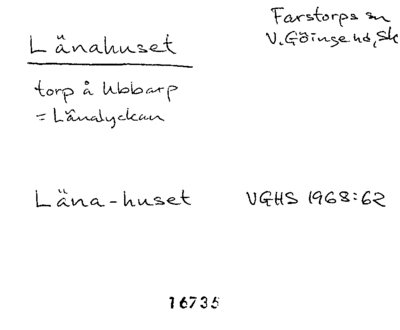 Länahuset
Farstorps sn
V. Göinge hd, Sk
torp å Ubbarp
= Länalyckan
Läna-huset VGHS 1968:62
16735